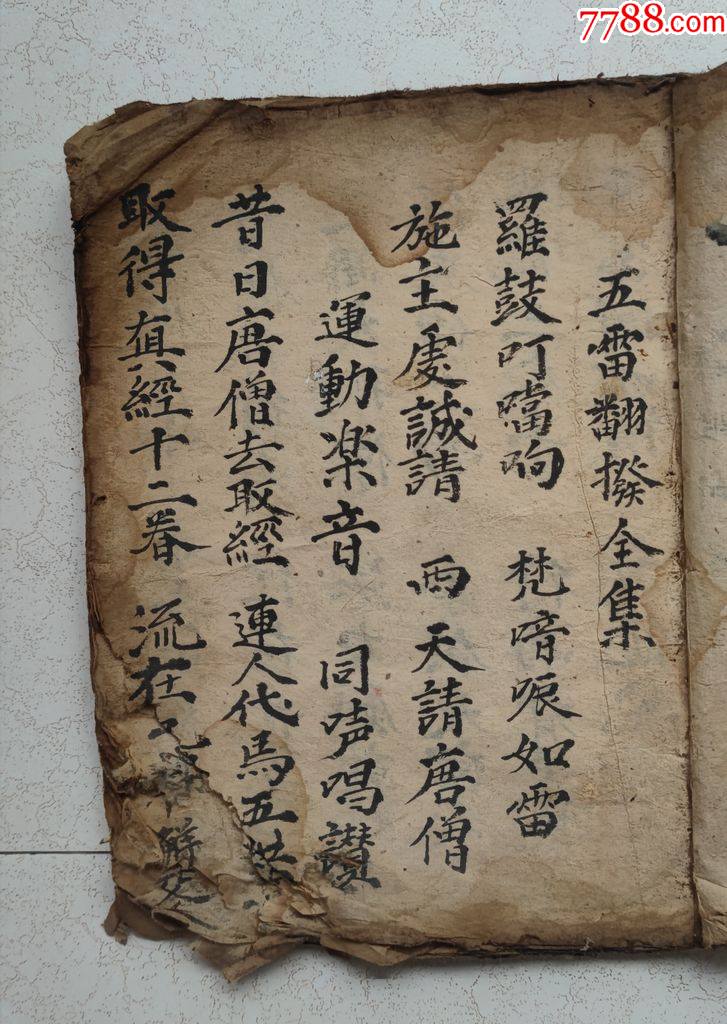 7788.com
五雷翻撥全集
羅鼓叮噹响 梵喑哌如雷
施主虔誠請 西天請唐僧
運動楽音 同声唱讃
昔日唐僧去取經 連人代馬五
取得真經十二眷 流在 解